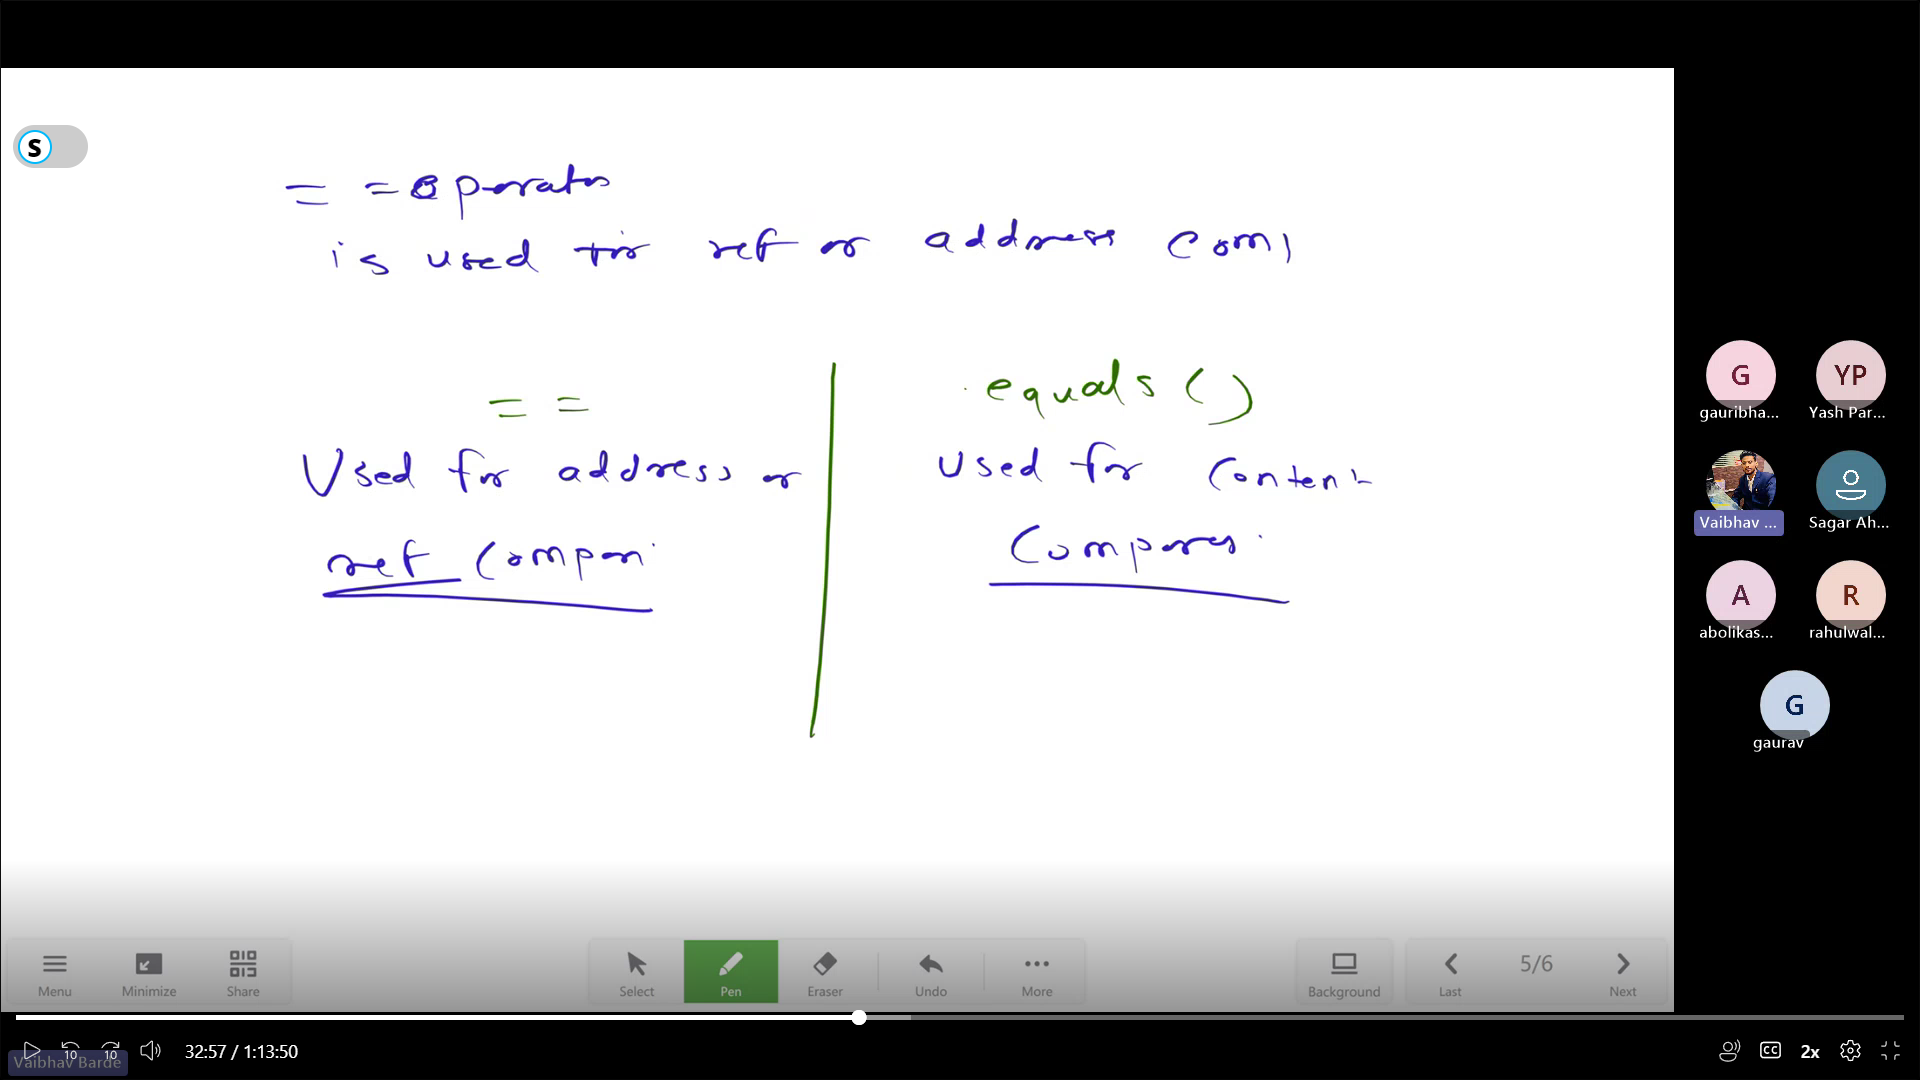 S
= = operator
is used for ref or address com
= =
Used for address or
ref compari
equals ( )
used for content
Compares
G
gauribha...
YP
Yash Par...
Vaibhav ...
Sagar Ah...
A
abolikas...
R
rahulwal...
G
gaurav
Menu
Minimize
Share
Select
Pen
Eraser
Undo
More
Background
Last
5/6
Next
10
10
32:57 / 1:13:50
CC
2x
Vaibhav Barde